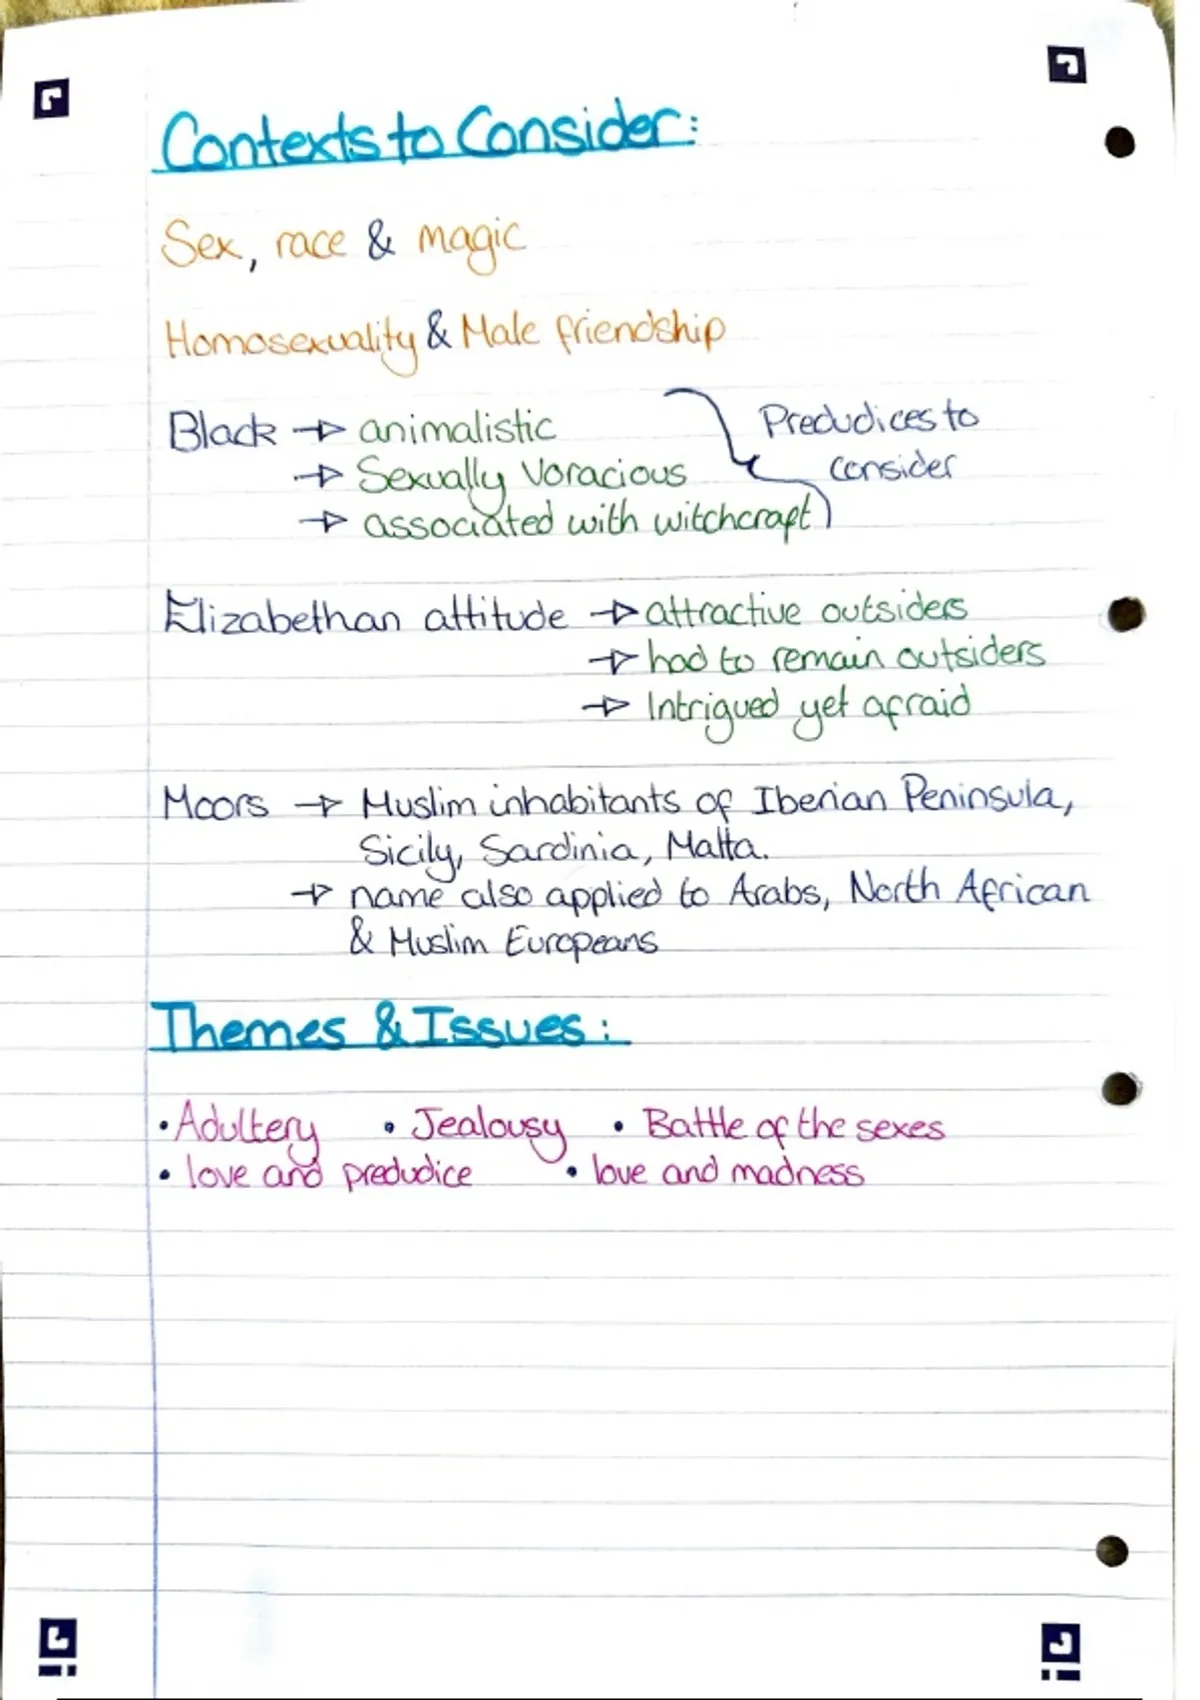 Contexts to Consider:
Sex, race & magic
Homosexuality & Male friendship
Black → animalistic
→ Sexually Voracious
→ associated with witchcraft
Predudices to
consider
Elizabethan attitude → attractive outsiders
→ had to remain outsiders
→ Intrigued yet afraid
Moors → Muslim inhabitants of Iberian Peninsula,
Sicily, Sardinia, Malta.
→ name also applied to Arabs, North African
& Muslim Europeans
Themes & Issues:
• Adultery • Jealousy • Battle of the sexes
• love and predudice • love and madness